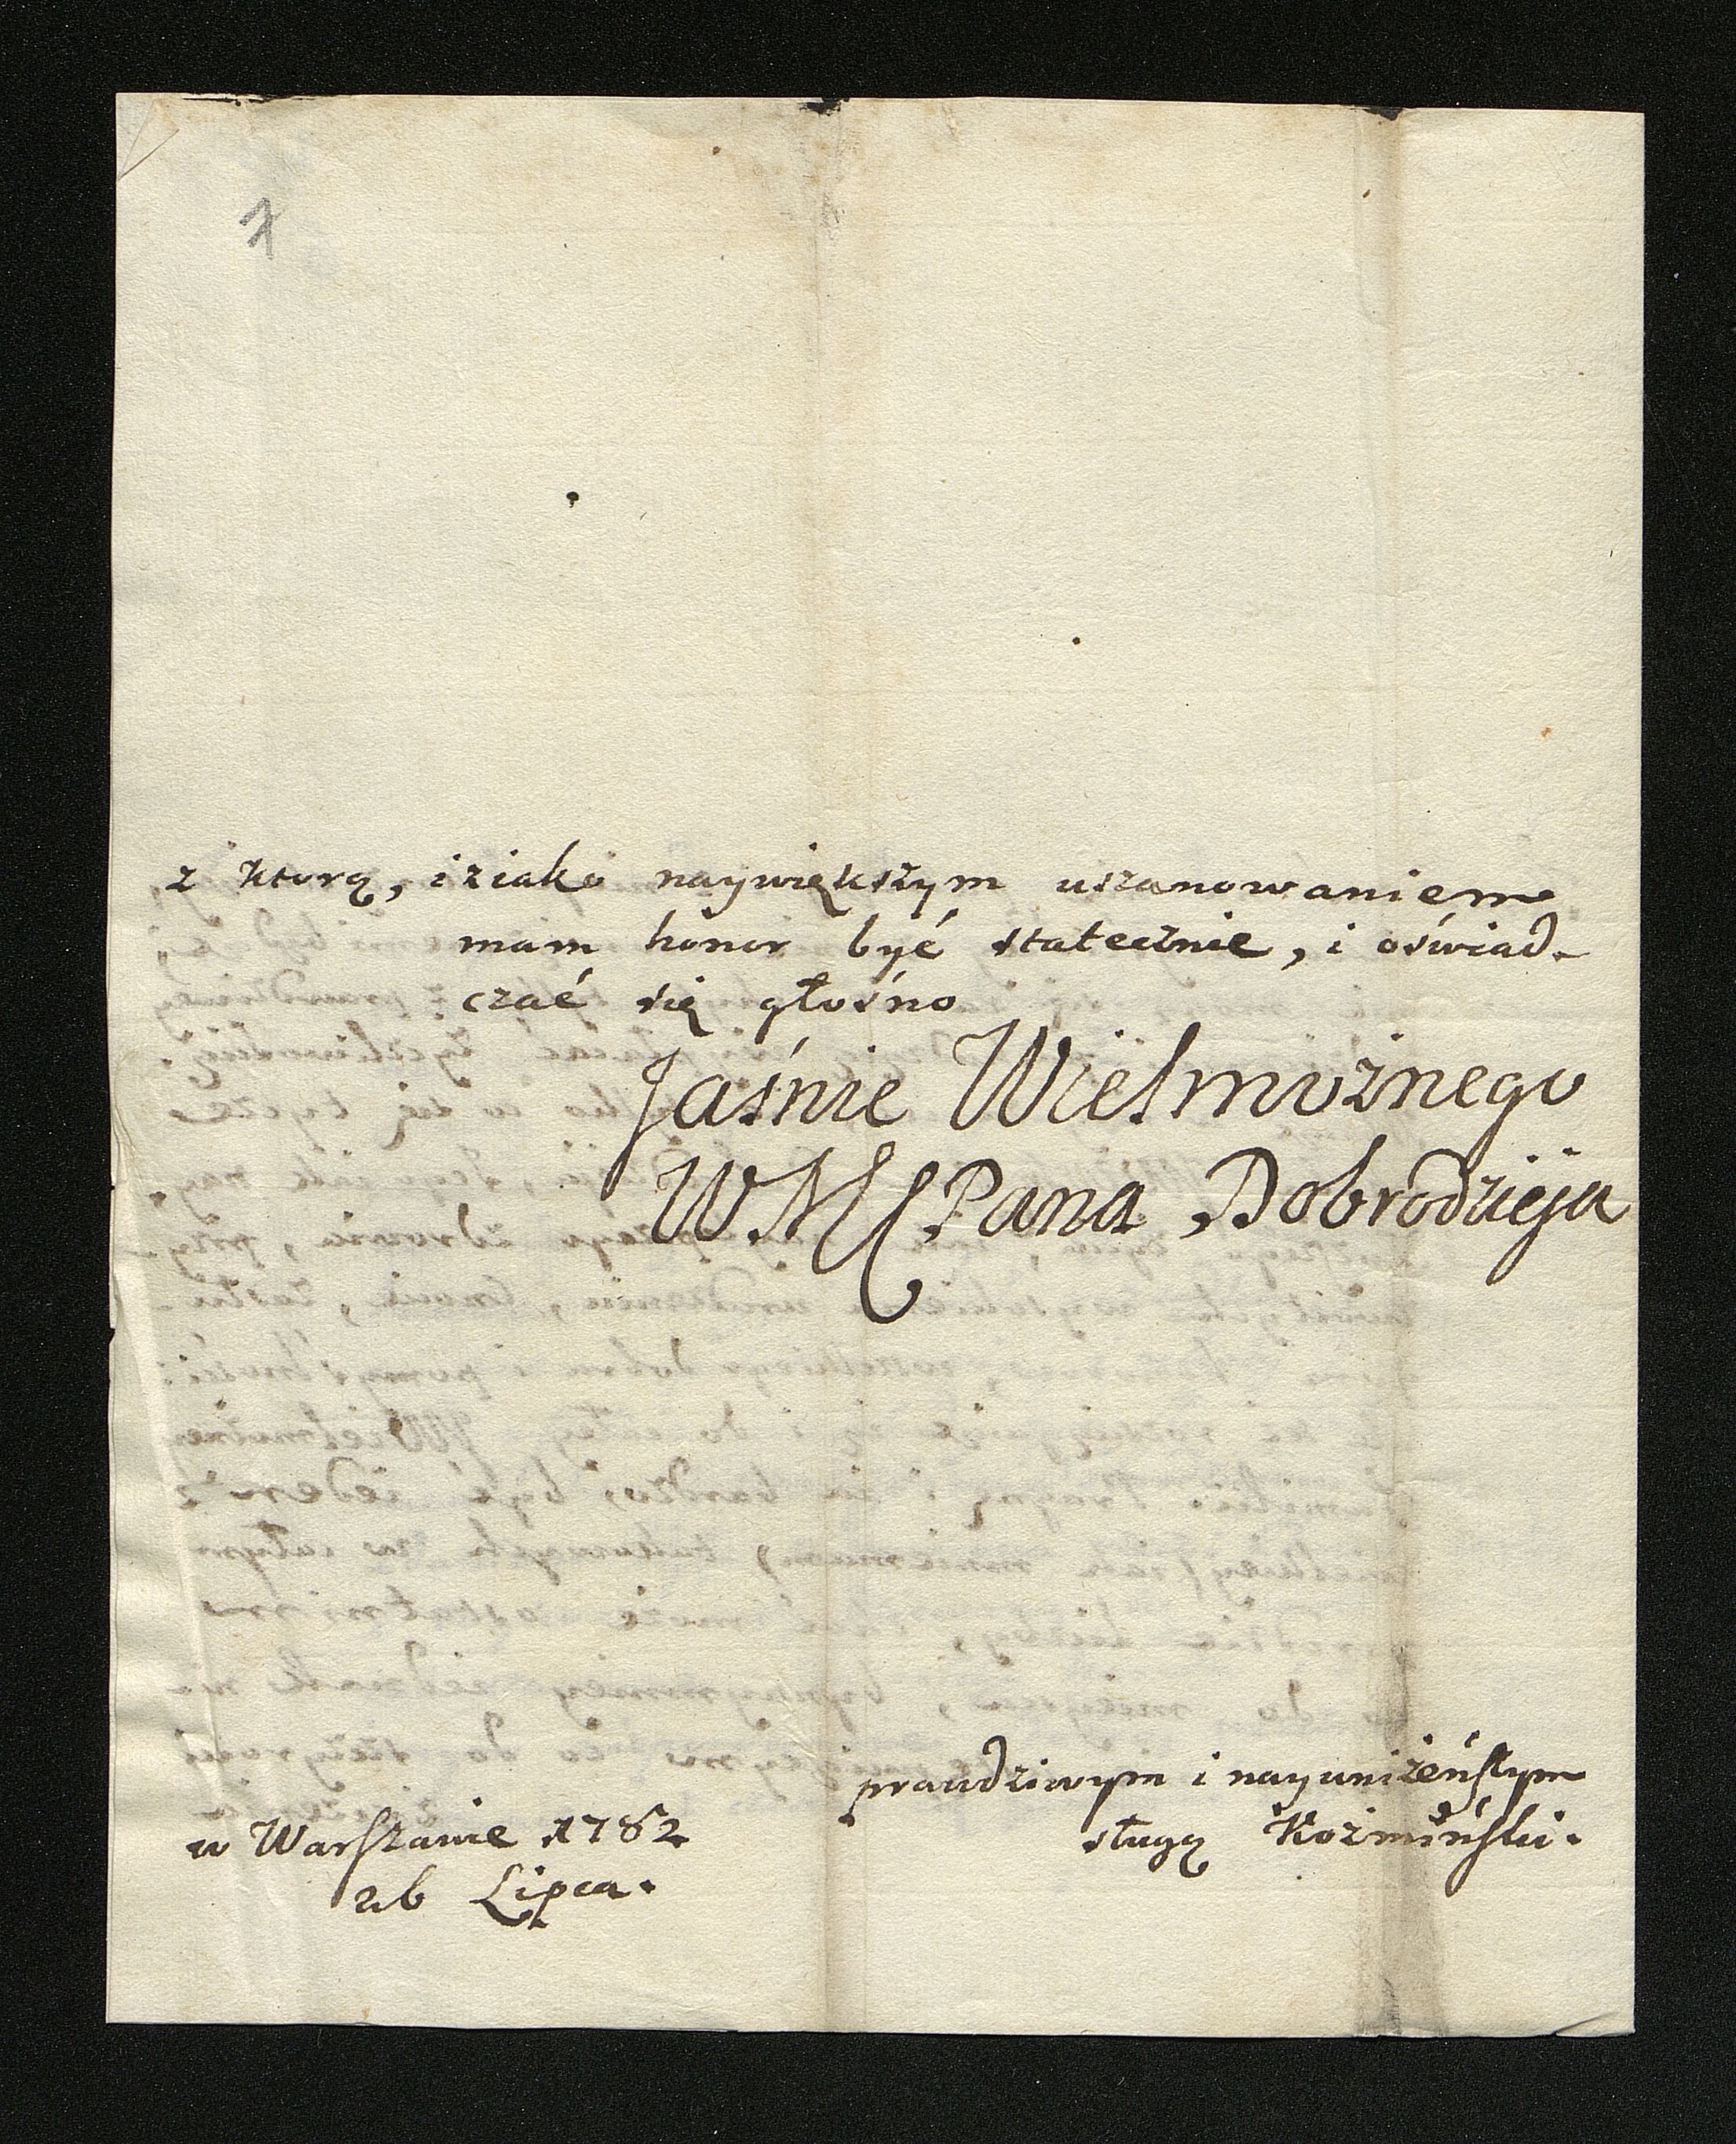 7
z ktorą, i ziako naywiększym uszanowaniem
mam honor być statecznie, i oświad-
czać się głośno
Jaśnie Wielmożnego
WMC Pana Dobrodzieja
prawdziwym i nayuniżeńszym
sługą Kozmiński.
w Warszawie 1782
26 Lipca.